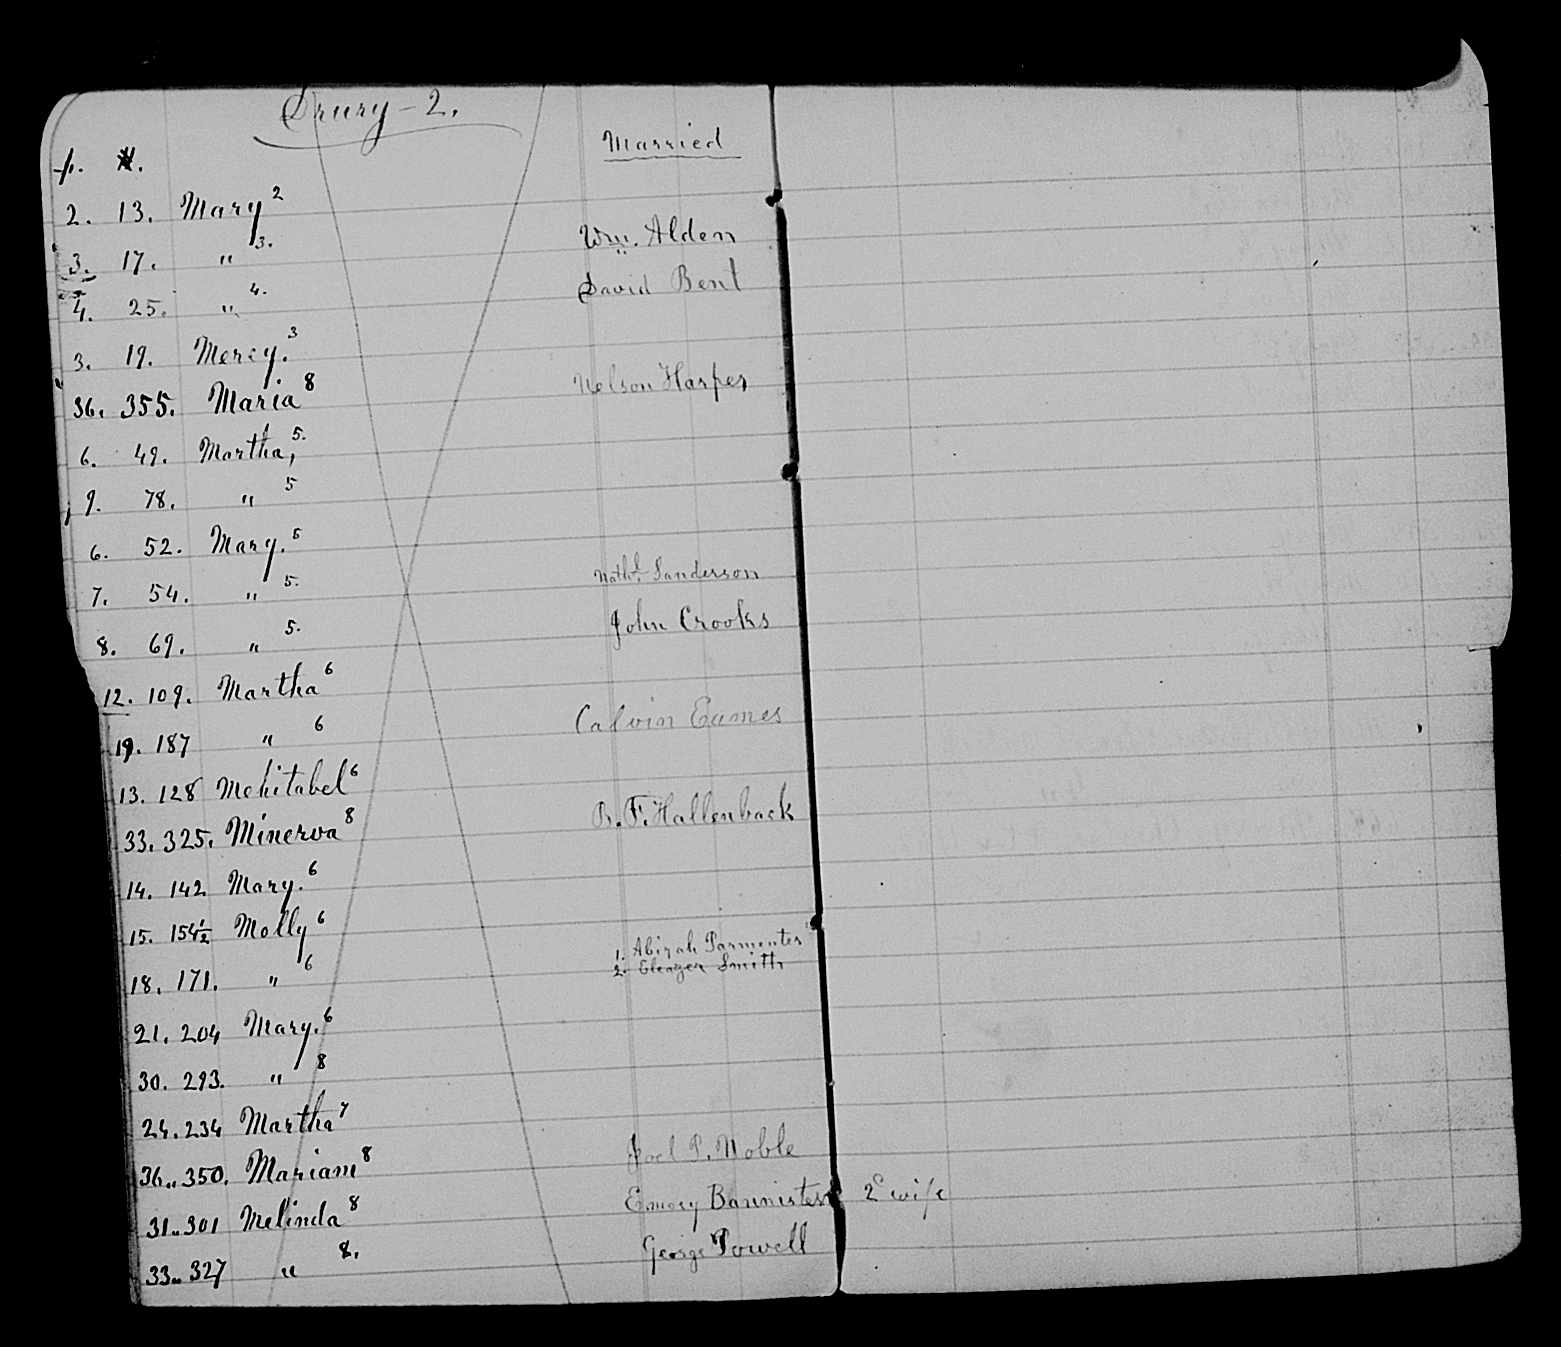 Drury - 2.
p. #. Married
2. 13. Mary²
3. 17. "³. Wm. Alden
4. 25. "⁴. David Bent
3. 19. Mercy.³
36. 355. Maria⁸ Nelson Harper
6. 49. Martha,⁵.
9. 78. "⁵
6. 52. Mary.⁵
7. 54. "⁵. Nathl. Sanderson
8. 69. "⁵. John Crooks
12. 109. Martha⁶
19. 187 "⁶ Calvin Eames
13. 128 Mehitabel⁶
33. 325. Minerva⁸ B. F. Hallenback
14. 142 Mary.⁶
15. 154½ Molly⁶
18. 171. "⁶ 1. Abijah Parmenter
2. Eleazer Smith
21. 204 Mary.⁶
30. 293. "⁸
24. 234 Martha⁷
36.. 350. Mariam⁸ Joel P. Noble
31.. 301 Melinda⁸ Emory Bannister 2ᵈ wife
33.. 327 "⁸. George Powell